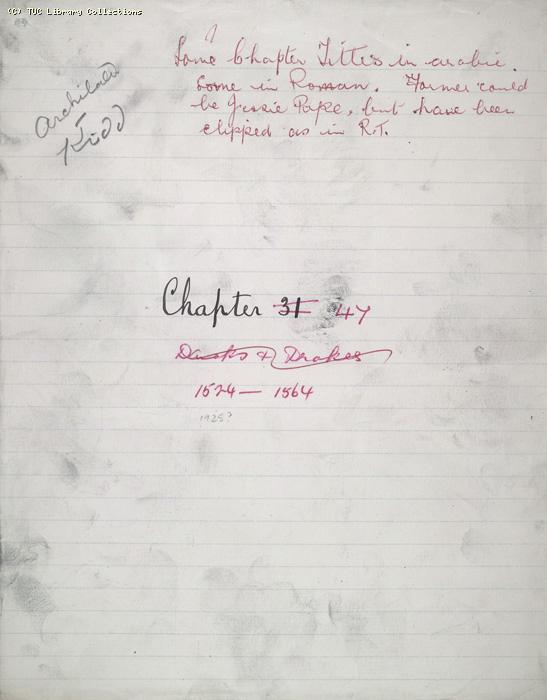 (C) TUC Library Collections
Some Chapter Titles in arabic.
Some in Roman. Former could
be Jessie Pope, but have been
clipped as in R.T.
Archibald
Kidd
Chapter 31 47
Ducks & Drakes
1524 — 1564
1925?